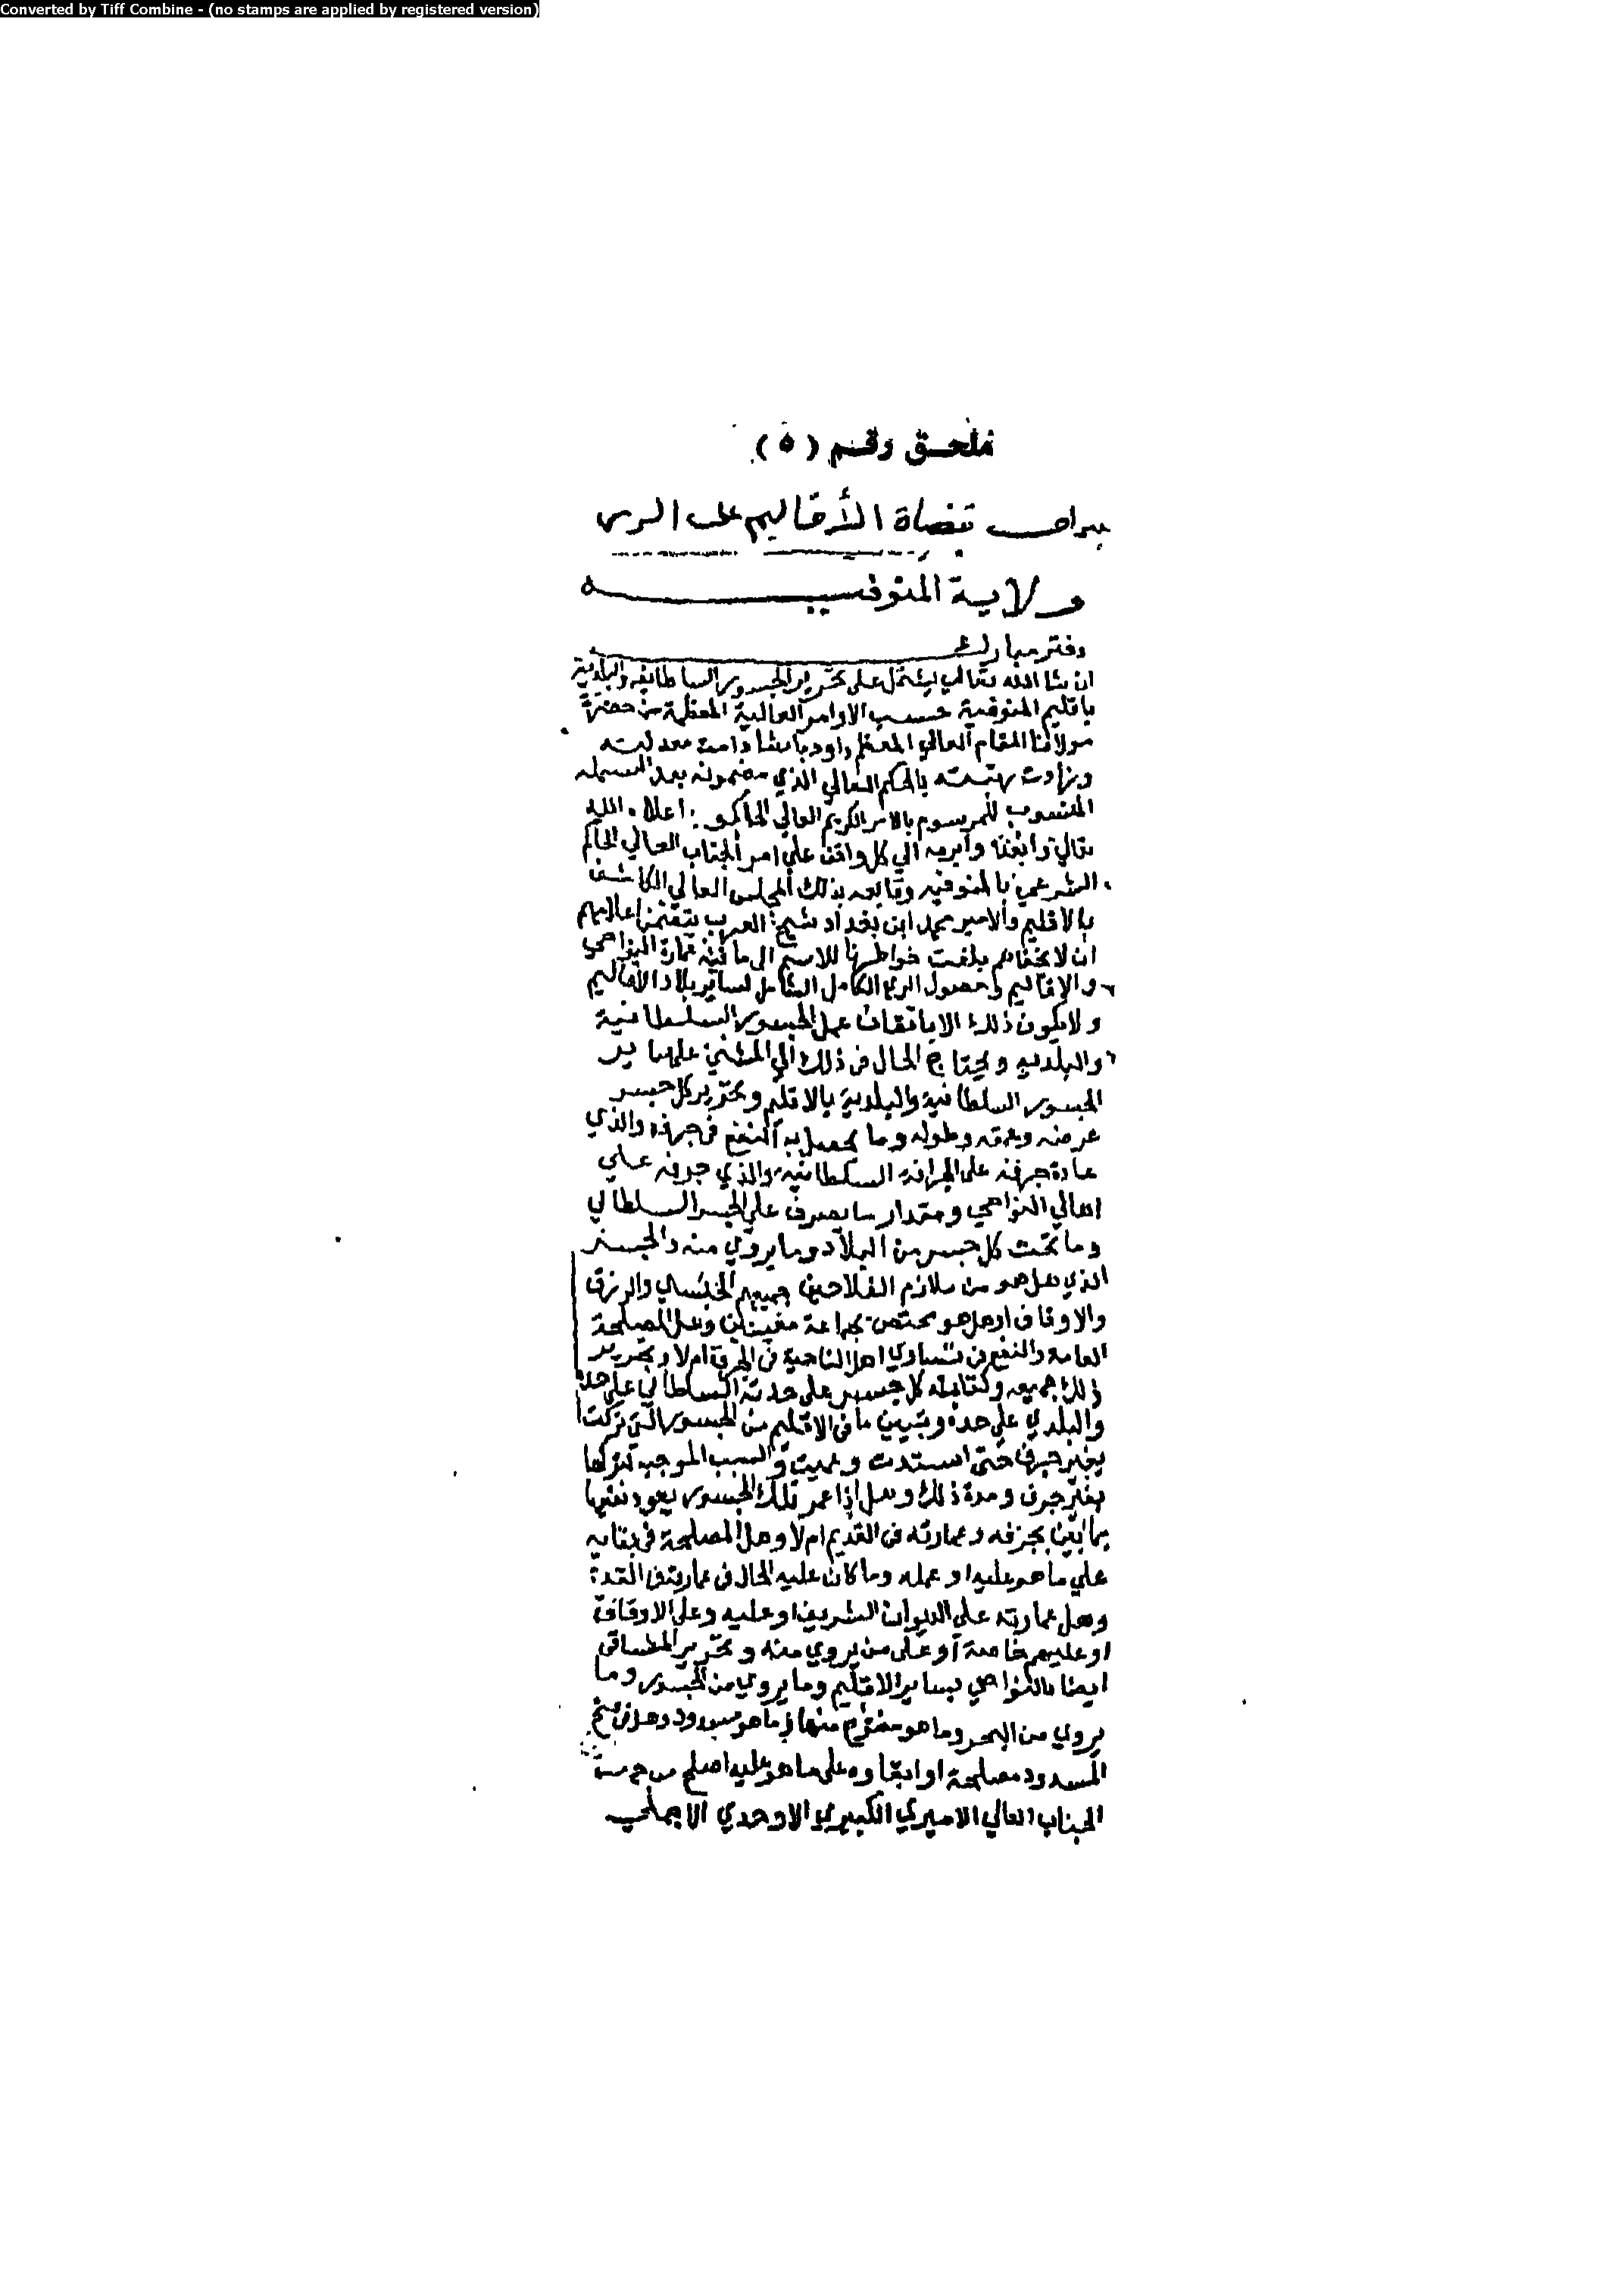 Converted by Tiff Combine - (no stamps are applied by registered version)
ملحق رقم (٥)
قضاة الأقاليم على الرى
ولاية المنوفيه
دفتر مبارك
ان شا الله تعالي يشتمل على تحرير الجسور السلطانيه والبلدية
باقليم المنوفية حسب الاوامر العالية المعظمة من حضرة
مولانا المقام العالي المعظم داود باشا دامت معدلته
وزادت بالحكم العالي الذي مضمونه بعد البسمله
المنسوب المرسوم بالامر الكريم العالي اعلاه الله
تعالي وابرمه الي كل واقف علي امر الجناب العالي الحاكم
الشرعي بالمنوفيه بذلك المجلس العالي الكاشف
بالاقليم والامير محمد ابن بغداد شيخ العرب
ان لا خواطرها الى ما فيه عمارة النواحي
والاقاليم وحصول الري الكامل الشامل لساير بلاد الاقاليم
ولا يكون ذلك الا باتقان عمل الجسور السلطانية
والبلديه ويحتاج الحال في ذلك الي علي
الجسور السلطانية والبلدية بالاقليم وتحرير كل جسر
عرضه وعمقه وطوله وما يحصل به النفع في جرفه والذي
عادة جرفه على الجرافه السلطانيه والذي جرفه علي
اهالي النواحي ومقدار ما يصرف علي الجسر السلطاني
وما تحت كل جسر من البلاد وما يروي منه والجسر
الذي هل هو من ملازم الفلاحين جميعهم والرزق
والاوقاف او هل هو مختص بجماعة معينين وهل المصلحة
العامه والنفع في تساوي اهل الناحية في ام لا وتحرير
ذلك جميعه وكتابة كل جسر على حدته السلطاني على حده
والبلدي علي حدة وتبيين ما في الاقليم من الجسور التي تركت
بغير جرف حتى استدت وعميت والسبب الموجب لتركها
بغير جرف ومدة ذلك وهل اذا عمر تلك الجسور يعود نفعها
بجرفه وعمارته في القديم ام لا وهل المصلحة في بقايه
علي ما هو عليه او عمله وما كان عليه الحال في عمارته في القدم
وهل عمارته على الديوان الشريف او عليه وعلى الاوقاف
او عليهم خاصة او على من يروي منه وتحرير
ايضا بالنواحي بساير الاقليم وما يروي من الجسور وما
يروي من البحر وما هو مفتوح منها وما هو مسدود وهل في فتح
المسدود مصلحة او ابقاوه على ما هو عليه اصلح
الجناب العالي الاميري الكبيري الاوحدي